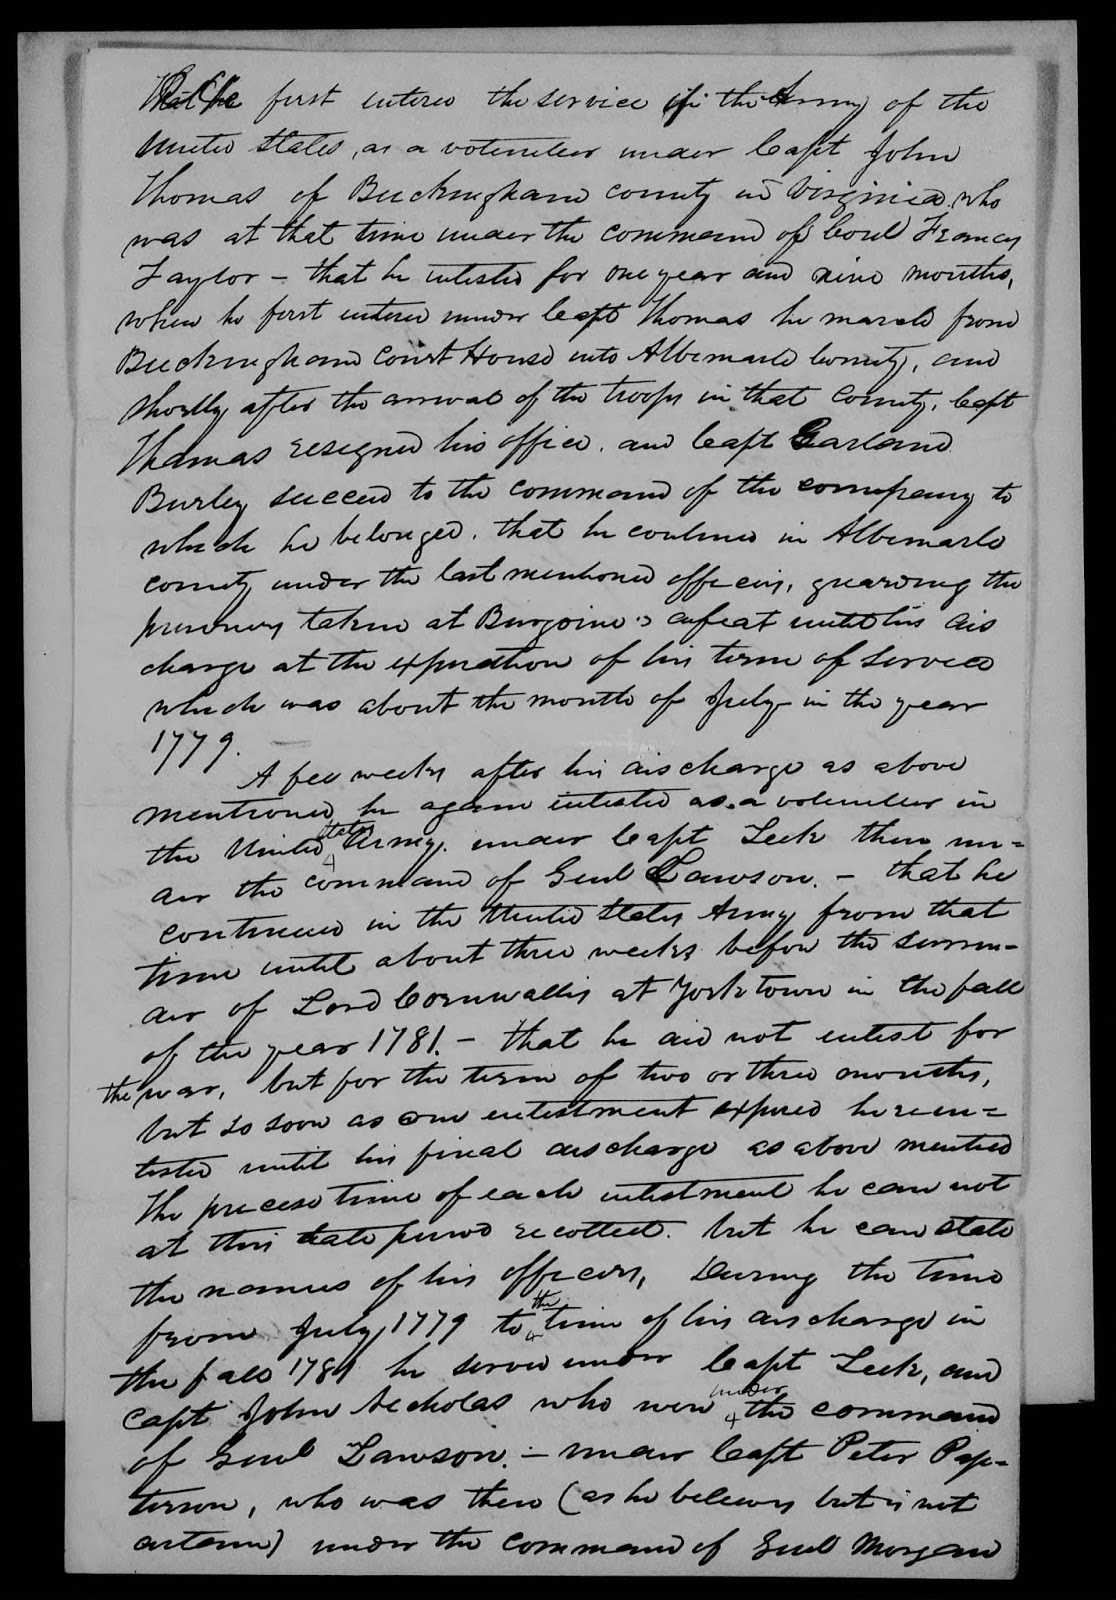 That he first entered the service in the Army of the
United States, as a volunteer under Capt John
Thomas of Buckingham county in Virginia who
was at that time under the command of Conl Francis
Taylor – that he inlisted for one year and nine months,
when he first entered under Capt Thomas he marched from
Buckingham Court House into Albemarle County, and
shortly after the arrival of the troops in that County, Capt
Thomas resigned his office. and Capt Garland
Burley succeed to the command of the company to
which he belonged. that he continued in Albemarle
county under the last mentioned officers, guarding the
prisoners taken at Burgoine's defeat until his dis
charge at the expiration of his term of service
which was about the month of July in the year
1779.
A few weeks after his discharge as above
mentioned he again inlisted as a volunteer in
the United States Army. under Capt Leek then un=
der the command of Genl Lawson. – that he
continued in the United States Army from that
time until about three weeks before the surren=
der of Lord Cornwallis at York town in the fall
of the year 1781. – that he did not inlist for
the war, but for the term of two or three months,
but so soon as one enlistment expired he reen=
listed until his final discharge as above mentied
The precise time of each inlistment he can not
at this late period recollect. but he can state
the names of his officers, During the time
from July 1779 to the time of his discharge in
the fall 1781 he served under Capt Leek, and
Capt John Nicholas who were under the command
of Genl Lawson. – under Capt Peter Pap=
terson, who was then (as he believes but is not
certain) under the command of Genl Morgan